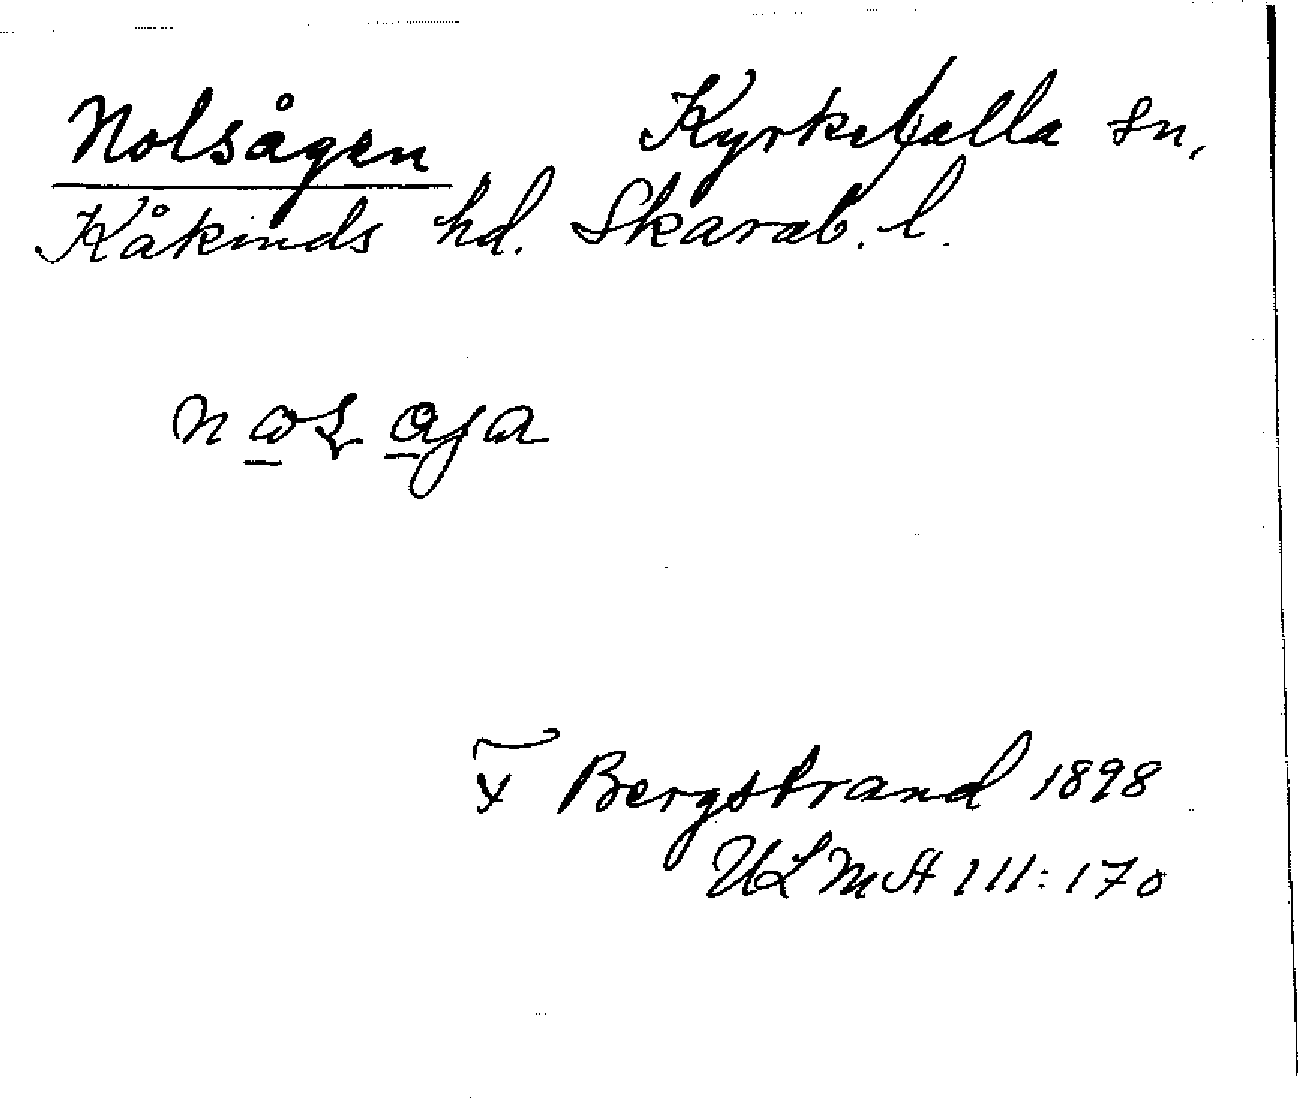 Nolsågen Kyrkefalla sn,
Kåkinds hd. Skarab. l.
Bergstrand 1898
ULMA 111:170